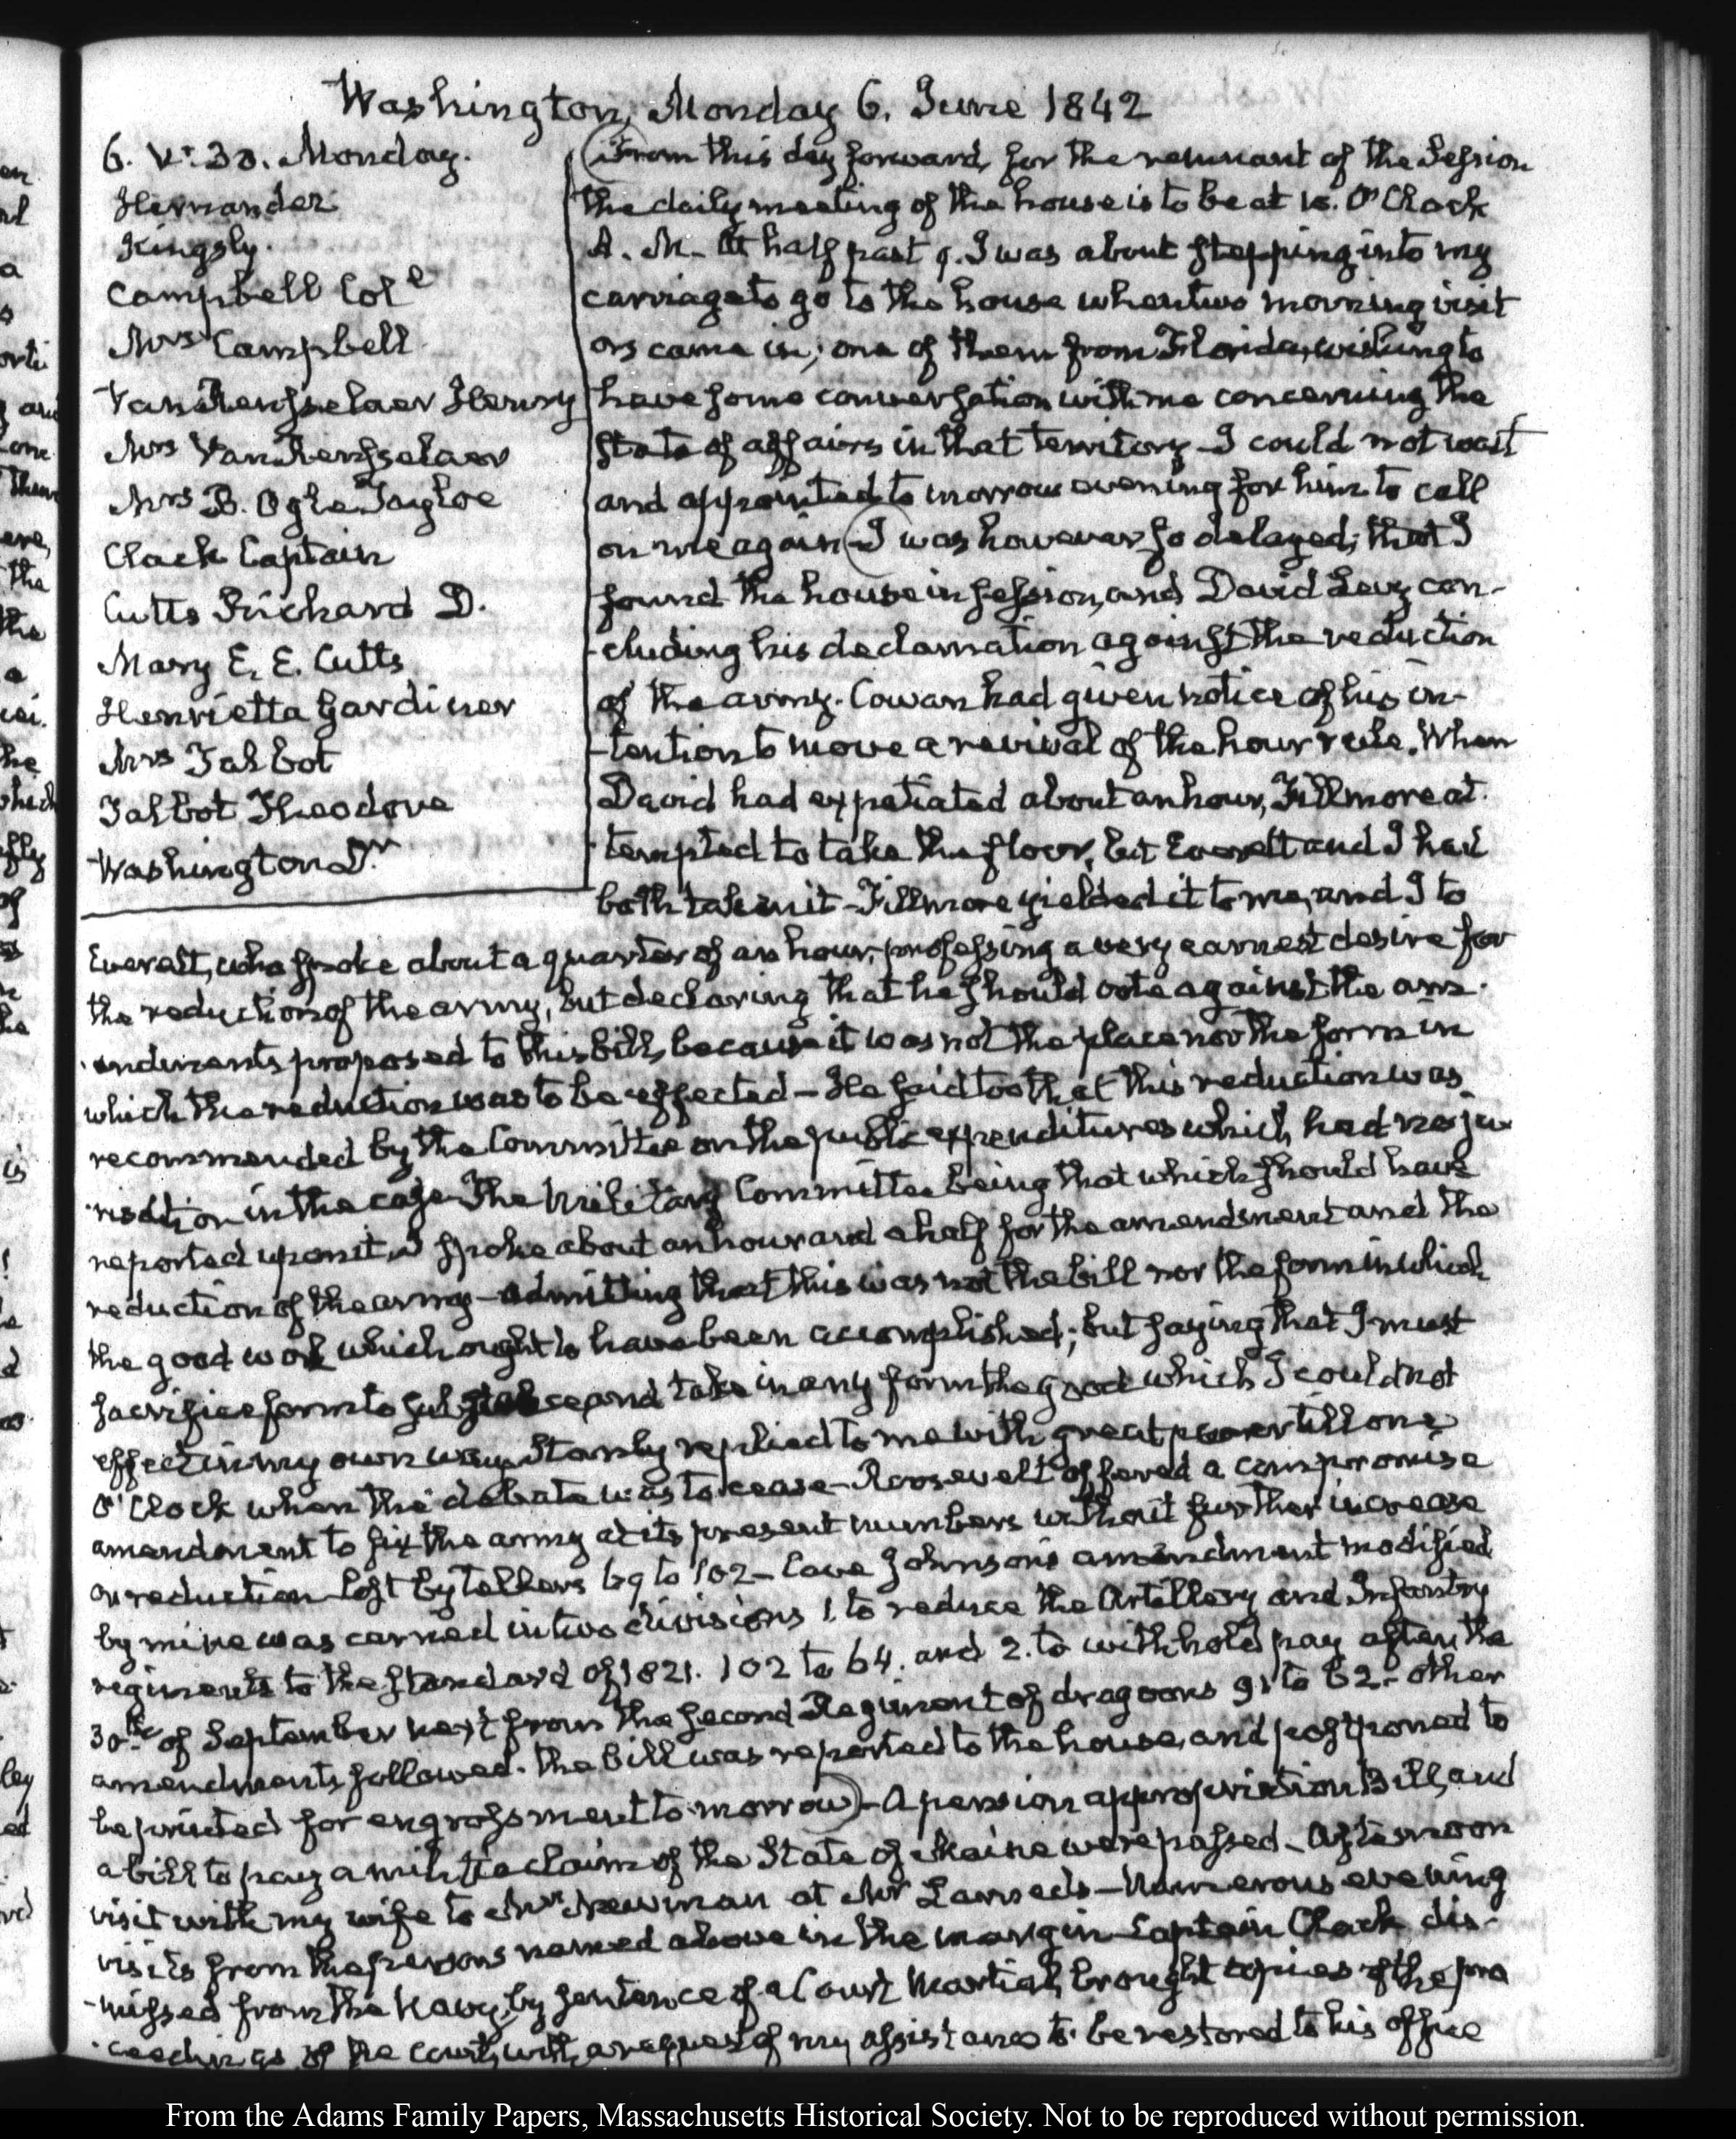 Washington, Monday 6. June 1842
6. V: 30. Monday.
Hernandez
Kingsly.
Campbell Col
Mrs Campbell
Van Rensselaer Henry
Mrs Van Rensselaer
Mrs B. Ogle Tayloe
Clack Captain
Cutts Richard D.
Mary E. E. Cutts
Henrietta Gardiner
Mrs Talbot
Talbot Theodore
Washington Dr
From this day forward, for the remnant of the Session
the daily meeting of the house is to be at 10. O'Clock
A. M. At half past 9. I was about stepping into my
carriage to go to the house when two morning visit
ors came in; one of them from Florida, wishing to
have some conversation with me concerning the
state of affairs in that territory - I could not wait
and appointed to morrow evening for him to call
on me again - I was however so delayed, that I
found the house in session, and David Levy con-
-cluding his declamation against the reduction
of the army. Cowan had given notice of his in-
-tention to move a revival of the hour rule. When
David had expatiated about an hour, Fillmore at-
-tempted to take the floor, but Everett and I had
both taken it - Fillmore yielded it to me, and I to
Everett, who spoke about a quarter of an hour, professing a very earnest desire for
the reduction of the army, but declaring that he should vote against the am-
-endments proposed to this bill, because it was not the place nor the form in
which the reduction was to be effected - He said too that this reduction was
recommended by the Committee on the public expenditures which had no ju-
-risdiction in the case The Military Committee being that which should have
reported upon it. I spoke about an hour and a half for the amendment and the
reduction of the army - admitting that this was not the bill nor the form in which
the good work which ought to have been accomplished; but saying that I must
sacrifice form to substance and take in any form the good which I could not
effect in my own way. Stanly replied to me with great power till one
O'Clock when the debate was to cease - Roosevelt offered a compromise
amendment to fix the army at its present numbers without further increase
or reduction - lost by tellers 69 to 102 - Cave Johnson's amendment modified
by mine was carried in two divisions 1. to reduce the Artillery and Infantry
regiments to the standard of 1821. 102 to 64. and 2. to withhold pay after the
30th of September next from the second Regiment of dragoons 91 to 62. - other
amendments followed. the bill was reported to the house, and postponed to
be printed for engrossment to morrow - A pension appropriation Bill, and
a bill to pay a militia claim of the State of Maine were passed - Afternoon
visit with my wife to Mrs Newman at Mr Larned's - Numerous evening
visits from the persons named above in the margin - Captain Clack dis-
-missed from the Navy, by sentence of a Court Martial, brought copies of the pro
-ceedings of the court, with a request of my assistance to be restored to his office
From the Adams Family Papers, Massachusetts Historical Society. Not to be reproduced without permission.